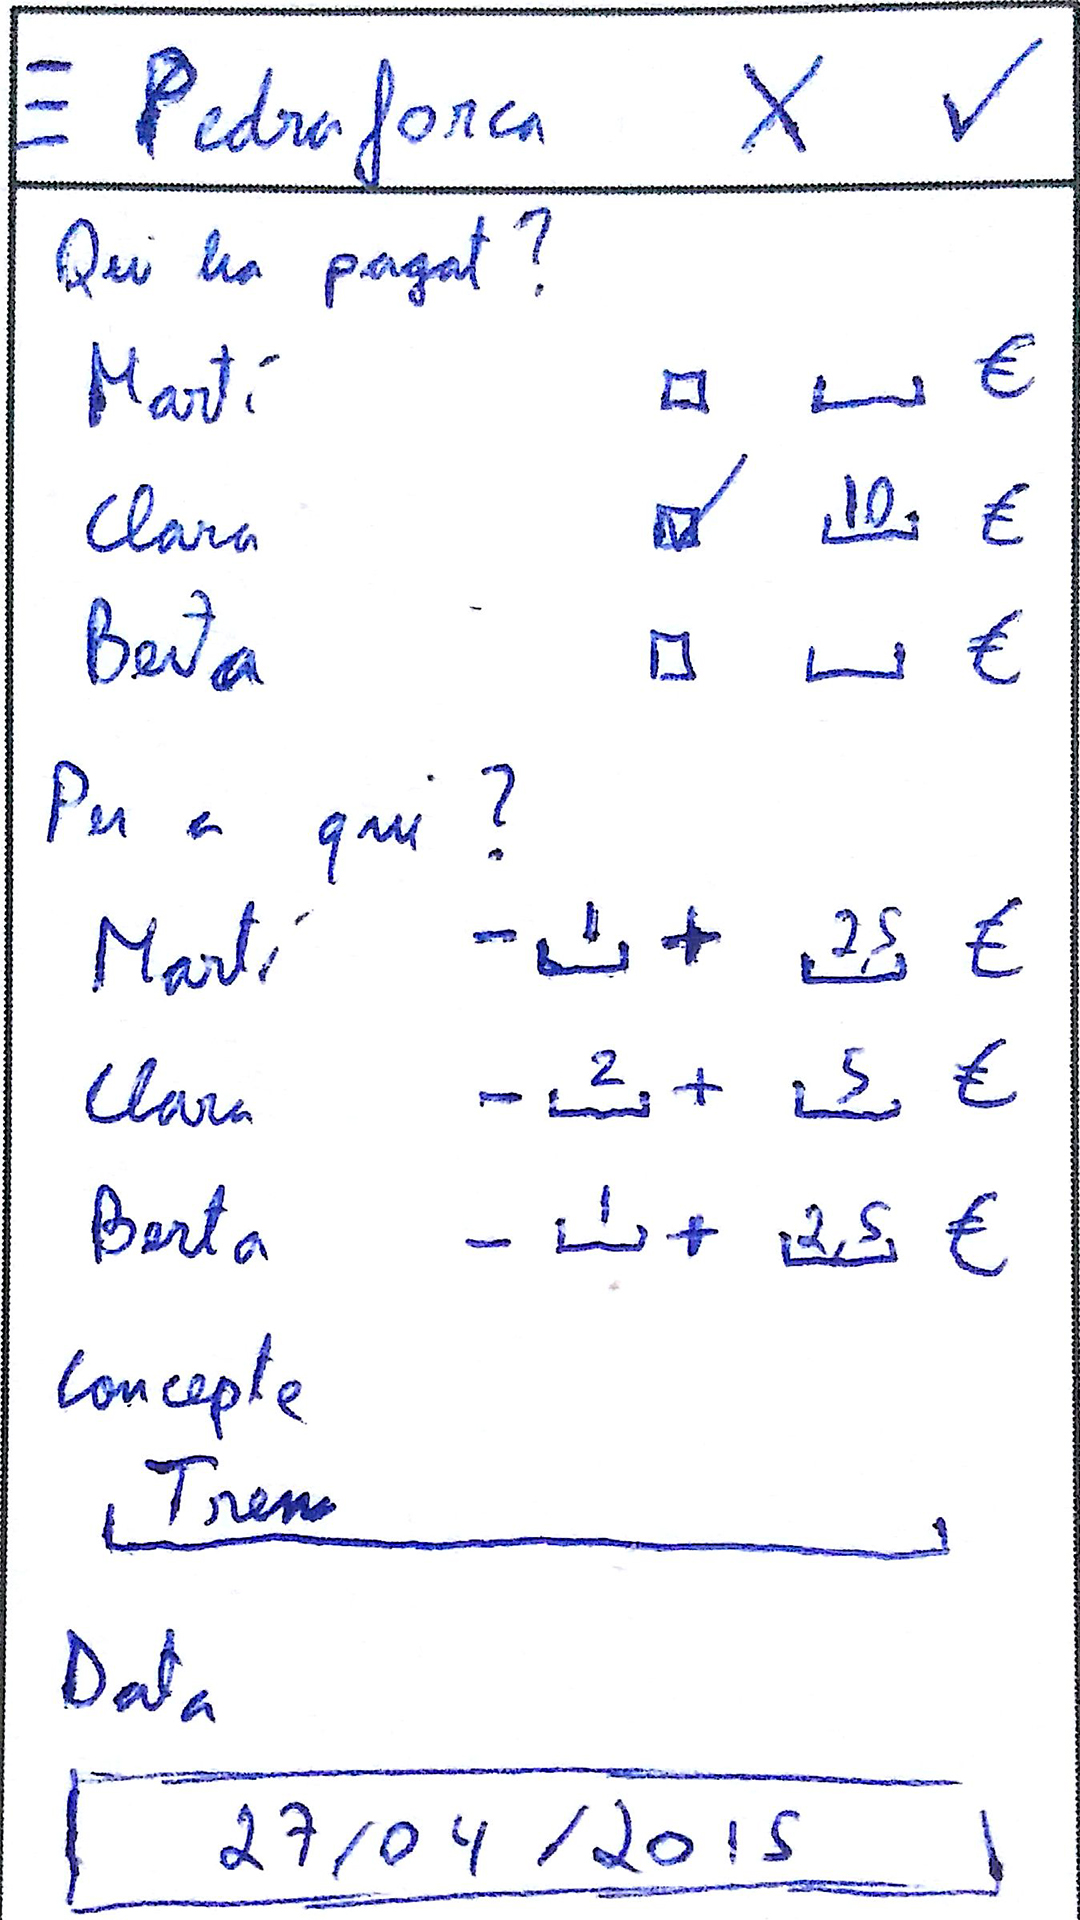 Pedraforca X ✓
Qui ha pagat?
Martí €
Clara ✓ 10 €
Berta €
Per a qui?
Martí - 1 + 2,5 €
Clara - 2 + 5 €
Berta - 1 + 2,5 €
Concepte
Tren
Data
27/04/2015